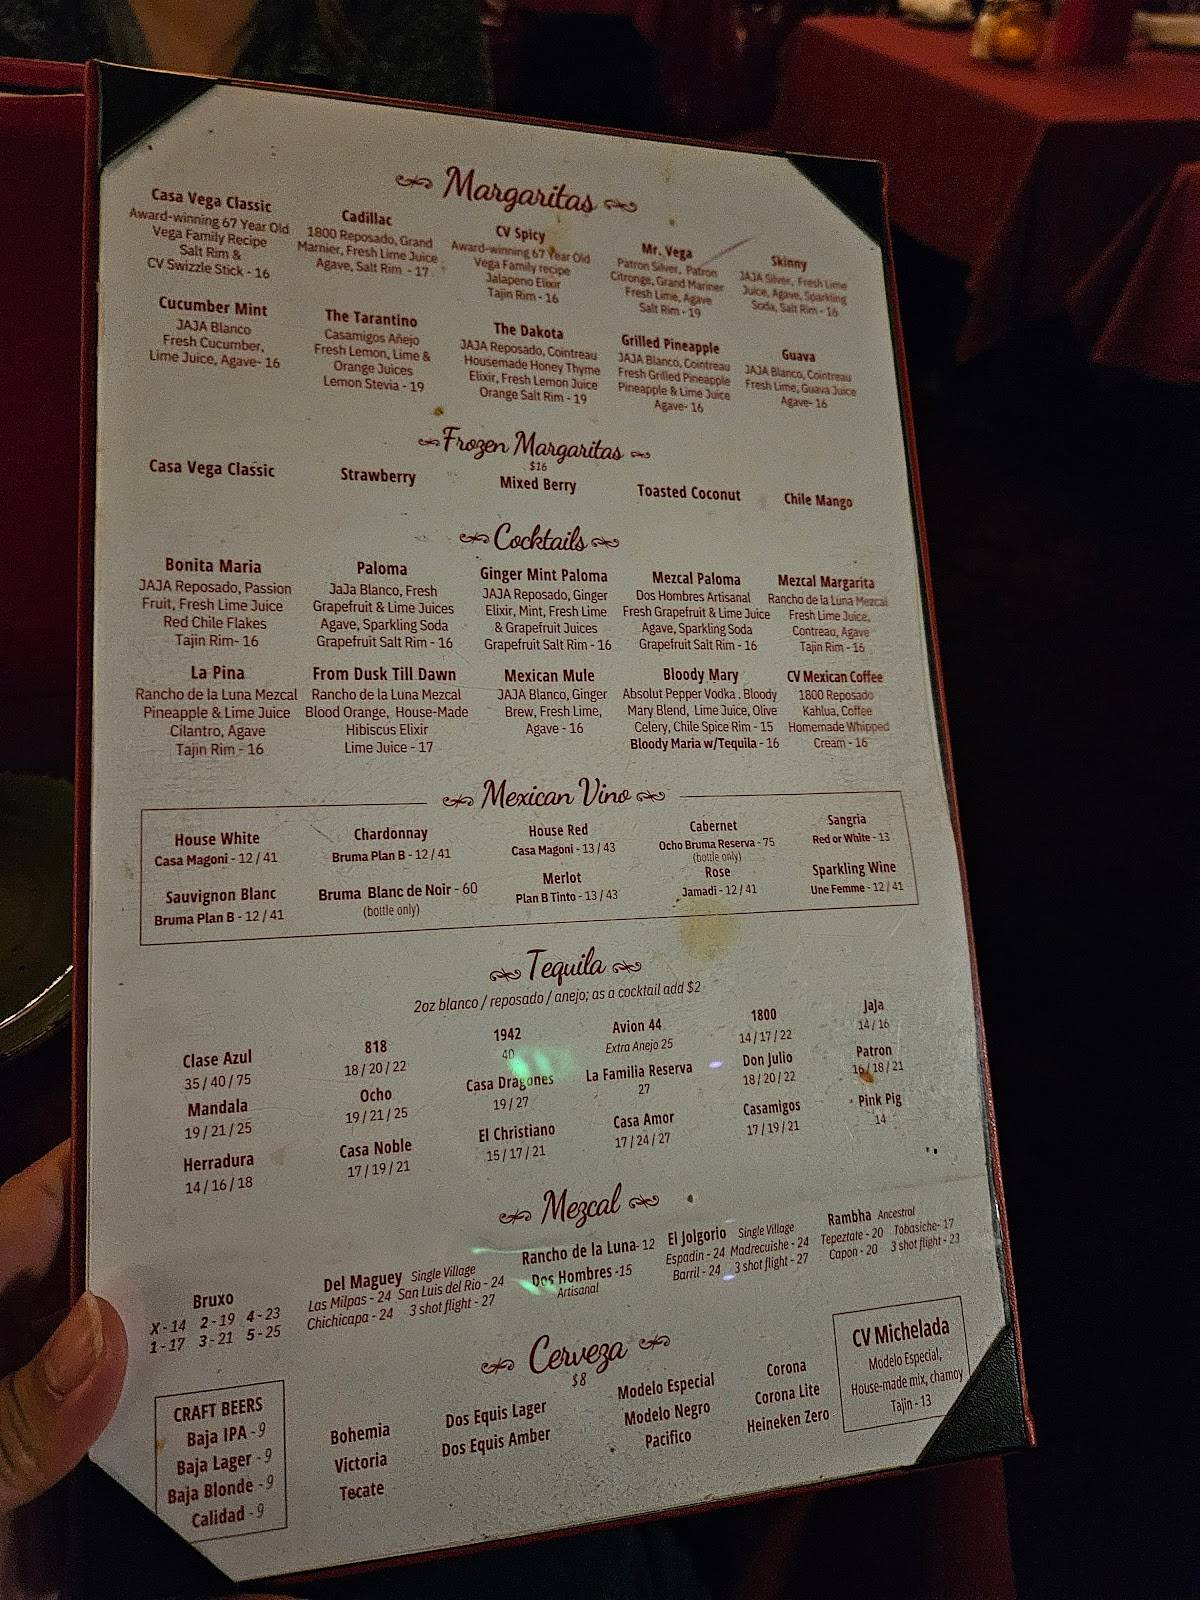 Margaritas
Casa Vega Classic
Award-winning 67 Year Old
Vega Family Recipe
Salt Rim &
CV Swizzle Stick - 16
Cadillac
1800 Reposado, Grand
Marnier, Fresh Lime Juice
Agave, Salt Rim - 17
CV Spicy
Award-winning 67 Year Old
Vega Family recipe
Jalapeno Elixir
Tajin Rim - 16
Mr. Vega
Patron Silver, Patron
Citronge, Grand Mariner
Fresh Lime, Agave
Salt Rim - 19
Skinny
JAJA Silver, Fresh Lime
Juice, Agave, Sparkling
Soda, Salt Rim - 16
Cucumber Mint
JAJA Blanco
Fresh Cucumber,
Lime Juice, Agave- 16
The Tarantino
Casamigos Añejo
Fresh Lemon, Lime &
Orange Juices
Lemon Stevia - 19
The Dakota
JAJA Reposado, Cointreau
Housemade Honey Thyme
Elixir, Fresh Lemon Juice
Orange Salt Rim - 19
Grilled Pineapple
JAJA Blanco, Cointreau
Fresh Grilled Pineapple
Pineapple & Lime Juice
Agave- 16
Guava
JAJA Blanco, Cointreau
Fresh Lime, Guava Juice
Agave- 16
Frozen Margaritas
$16
Casa Vega Classic
Strawberry
Mixed Berry
Toasted Coconut
Chile Mango
Cocktails
Bonita Maria
JAJA Reposado, Passion
Fruit, Fresh Lime Juice
Red Chile Flakes
Tajin Rim- 16
Paloma
JaJa Blanco, Fresh
Grapefruit & Lime Juices
Agave, Sparkling Soda
Grapefruit Salt Rim - 16
Ginger Mint Paloma
JAJA Reposado, Ginger
Elixir, Mint, Fresh Lime
& Grapefruit Juices
Grapefruit Salt Rim - 16
Mezcal Paloma
Dos Hombres Artisanal
Fresh Grapefruit & Lime Juice
Agave, Sparkling Soda
Grapefruit Salt Rim - 16
Mezcal Margarita
Rancho de la Luna Mezcal
Fresh Lime Juice,
Contreau, Agave
Tajin Rim - 16
La Pina
Rancho de la Luna Mezcal
Pineapple & Lime Juice
Cilantro, Agave
Tajin Rim - 16
From Dusk Till Dawn
Rancho de la Luna Mezcal
Blood Orange, House-Made
Hibiscus Elixir
Lime Juice - 17
Mexican Mule
JAJA Blanco, Ginger
Brew, Fresh Lime,
Agave - 16
Bloody Mary
Absolut Pepper Vodka . Bloody
Mary Blend, Lime Juice, Olive
Celery, Chile Spice Rim - 15
Bloody Maria w/Tequila - 16
CV Mexican Coffee
1800 Reposado
Kahlua, Coffee
Homemade Whipped
Cream - 16
Mexican Vino
House White
Casa Magoni - 12 / 41
Chardonnay
Bruma Plan B - 12 / 41
House Red
Casa Magoni - 13 / 43
Cabernet
Ocho Bruma Reserva - 75
(bottle only)
Sangria
Red or White - 13
Sauvignon Blanc
Bruma Plan B - 12 / 41
Bruma Blanc de Noir - 60
(bottle only)
Merlot
Plan B Tinto - 13 / 43
Rose
Jamadi - 12 / 41
Sparkling Wine
Une Femme - 12 / 41
Tequila
2oz blanco / reposado / anejo; as a cocktail add $2
Clase Azul
35 / 40 / 75
818
18 / 20 / 22
1942
40
Avion 44
Extra Anejo 25
1800
14 / 17 / 22
JaJa
14 / 16
Mandala
19 / 21 / 25
Ocho
19 / 21 / 25
Casa Dragones
19 / 27
La Familia Reserva
27
Don Julio
18 / 20 / 22
Patron
16 / 18 / 21
Herradura
14 / 16 / 18
Casa Noble
17 / 19 / 21
El Christiano
15 / 17 / 21
Casa Amor
17 / 24 / 27
Casamigos
17 / 19 / 21
Pink Pig
14
Mezcal
Bruxo
X - 14 2 - 19 4 - 23
1 - 17 3 - 21 5 - 25
Del Maguey Single Village
Las Milpas - 24 San Luis del Rio - 24
Chichicapa - 24 3 shot flight - 27
Rancho de la Luna- 12
Dos Hombres -15
Artisanal
El Jolgorio Single Village
Espadin - 24 Madrecuishe - 24
Barril - 24 3 shot flight - 27
Rambha Ancestral
Tepeztate - 20 Tobasiche- 17
Capon - 20 3 shot flight - 23
Cerveza
$8
CRAFT BEERS
Baja IPA - 9
Baja Lager - 9
Baja Blonde - 9
Calidad - 9
Bohemia
Victoria
Tecate
Dos Equis Lager
Dos Equis Amber
Modelo Especial
Modelo Negro
Pacifico
Corona
Corona Lite
Heineken Zero
CV Michelada
Modelo Especial,
House-made mix, chamoy
Tajin - 13